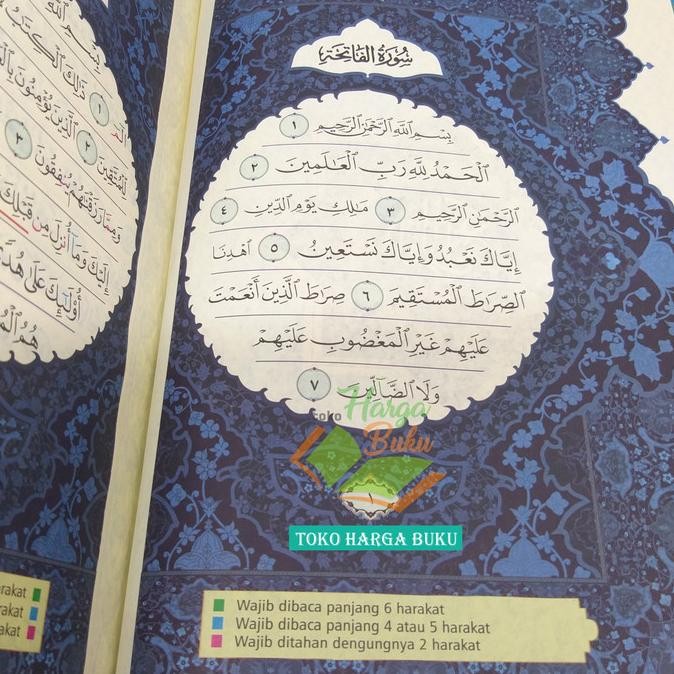 سُورَةُ الفَاتِحَةِ
بِسْمِ ٱللَّهِ ٱلرَّحْمَٰنِ ٱلرَّحِيمِ ١
ٱلْحَمْدُ لِلَّهِ رَبِّ ٱلْعَٰلَمِينَ ٢
ٱلرَّحْمَٰنِ ٱلرَّحِيمِ ٣ مَٰلِكِ يَوْمِ ٱلدِّينِ ٤
إِيَّاكَ نَعْبُدُ وَإِيَّاكَ نَسْتَعِينُ ٥ ٱهْدِنَا
ٱلصِّرَٰطَ ٱلْمُسْتَقِيمَ ٦ صِرَٰطَ ٱلَّذِينَ أَنْعَمْتَ
عَلَيْهِمْ غَيْرِ ٱلْمَغْضُوبِ عَلَيْهِمْ
وَلَا ٱلضَّآلِّينَ ٧
toko Harga
Buku
١
TOKO HARGA BUKU
Wajib dibaca panjang 6 harakat
Wajib dibaca panjang 4 atau 5 harakat
Wajib ditahan dengungnya 2 harakat
ذَٰلِكَ ٱلْكِتَٰبُ
ٱلَّذِينَ يُؤْمِنُونَ
وَمِمَّا رَزَقْنَٰهُمْ يُنفِقُونَ ٣
إِلَيْكَ وَمَآ أُنزِلَ مِن قَبْلِكَ
أُو۟لَٰٓئِكَ عَلَىٰ هُدًى